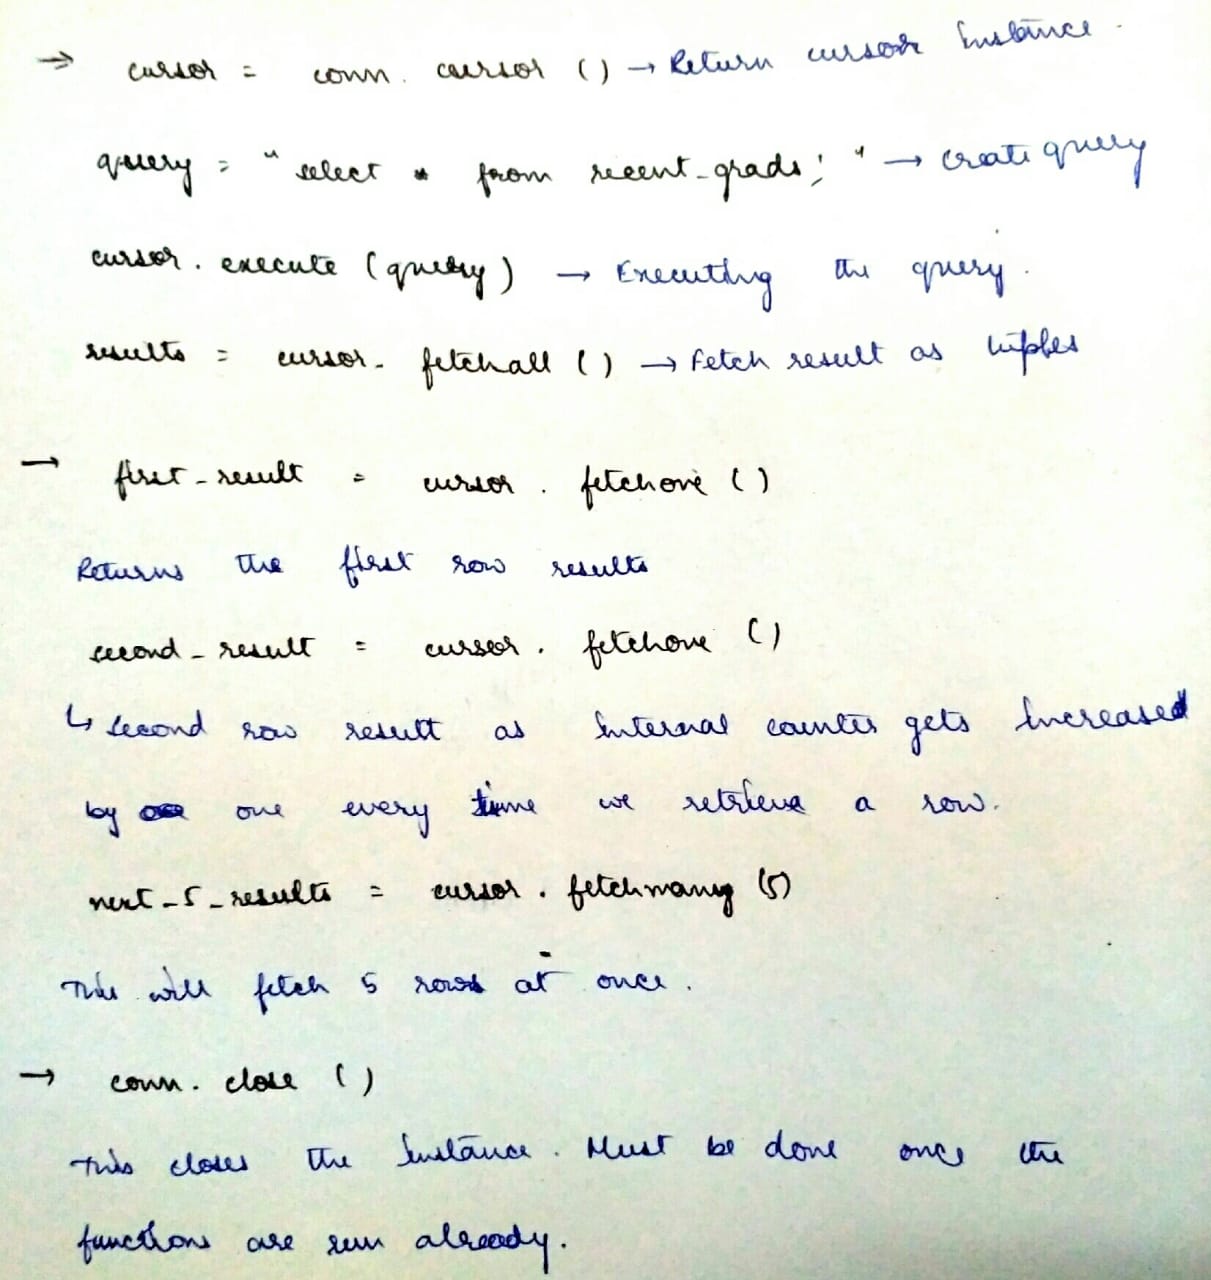 → cursor = conn. cursor () → Return cursor instance.
query = "select * from recent_grads;" → create query
cursor. execute (query) → Executing the query.
results = cursor. fetchall () → Fetch result as tuples
→ first_result = cursor. fetchone ()
Returns the first row results
second_result = cursor. fetchone ()
↳ second row result as internal counter gets increased
by one every time we retrieve a row.
next_5_results = cursor. fetchmany (5)
This will fetch 5 rows at once.
→ conn. close ()
This closes the instance. Must be done once the
functions are run already.